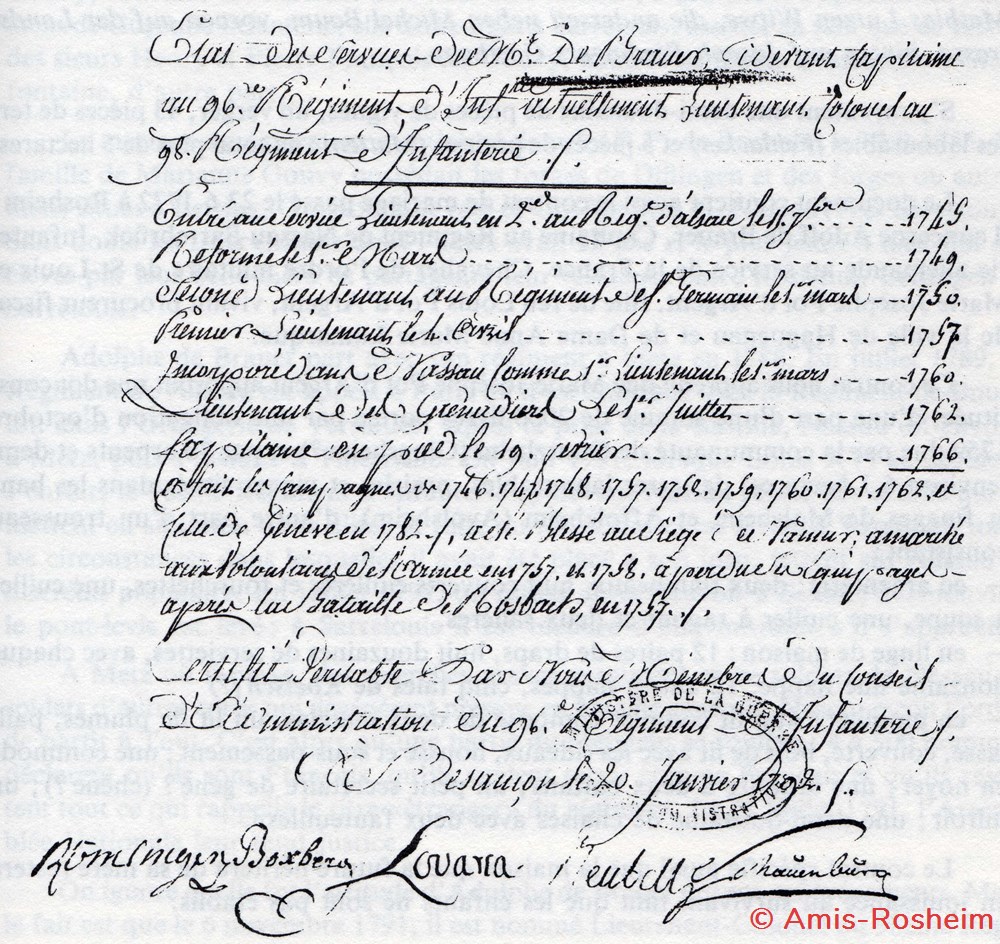 Etat des Services de Mr. De Brauer, cidevant Capitaine
au 96me Régiment d'Inf. actuellement Lieutenant Colonel au
98e Régiment d'Infanterie /.
Entré au Service Lieutenant en 2nd au Reg. d'alsace le 1er 7bre 1745
Réformé le 1er Mars 1749
Second Lieutenant au Régiment de St Germain le 1er mars 1750.
Premier Lieutenant le 4 avril 1757
Incorporé dans de Nassau Comme 1er Lieutenant le 1er mars 1760
Lieutenant de Grenadiers Le 1er Juillet 1762
Capitaine en pied le 19 fevrier 1766.
a fait les Campagnes de 1746. 1747 1748. 1757. 1758. 1759. 1760. 1761. 1762, et
celle de Genève en 1782 /. a eté Blessé au Siége de Namur, a marché
aux Volontaires de l'armée en 1757 et 1758. a perdu ses Equipages
après la Bataille de Rosbach, en 1757. /.
Certifié Véritable Par Nous Membres du Conseil
d'administration du 96e Régiment d'Infanterie /.
le 20 Janvier 1792 /.
MINISTÈRE DE LA GUERRE
Boxberg Schauenburg
© Amis-Rosheim